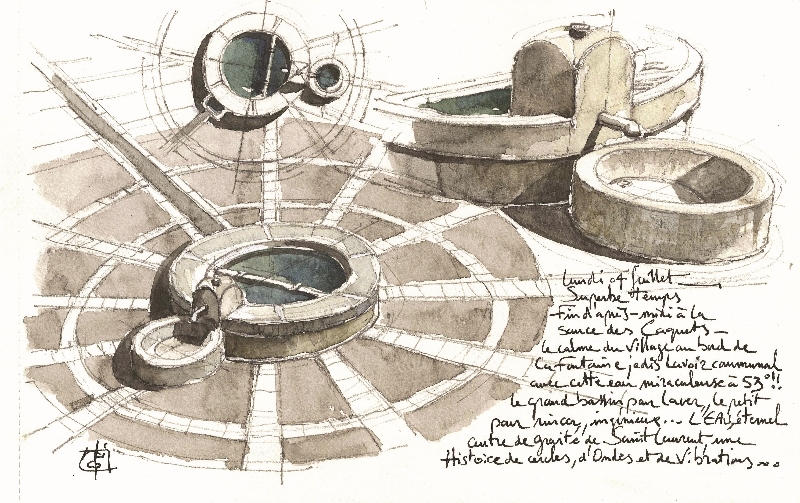 Lundi 04 Juillet
Superbe temps
fin d'après-midi à la
source des Caquets -
le calme du village au bord de
la fontaine, jadis lavoir communal
avec cette eau miraculeuse à 53°!!
le grand bassin pour laver, le petit
pour rincer, ingénieux... L'EAU, éternel
centre de gravité de Saint Laurent une
Histoire de cercles, d'Ondes et de Vibrations...